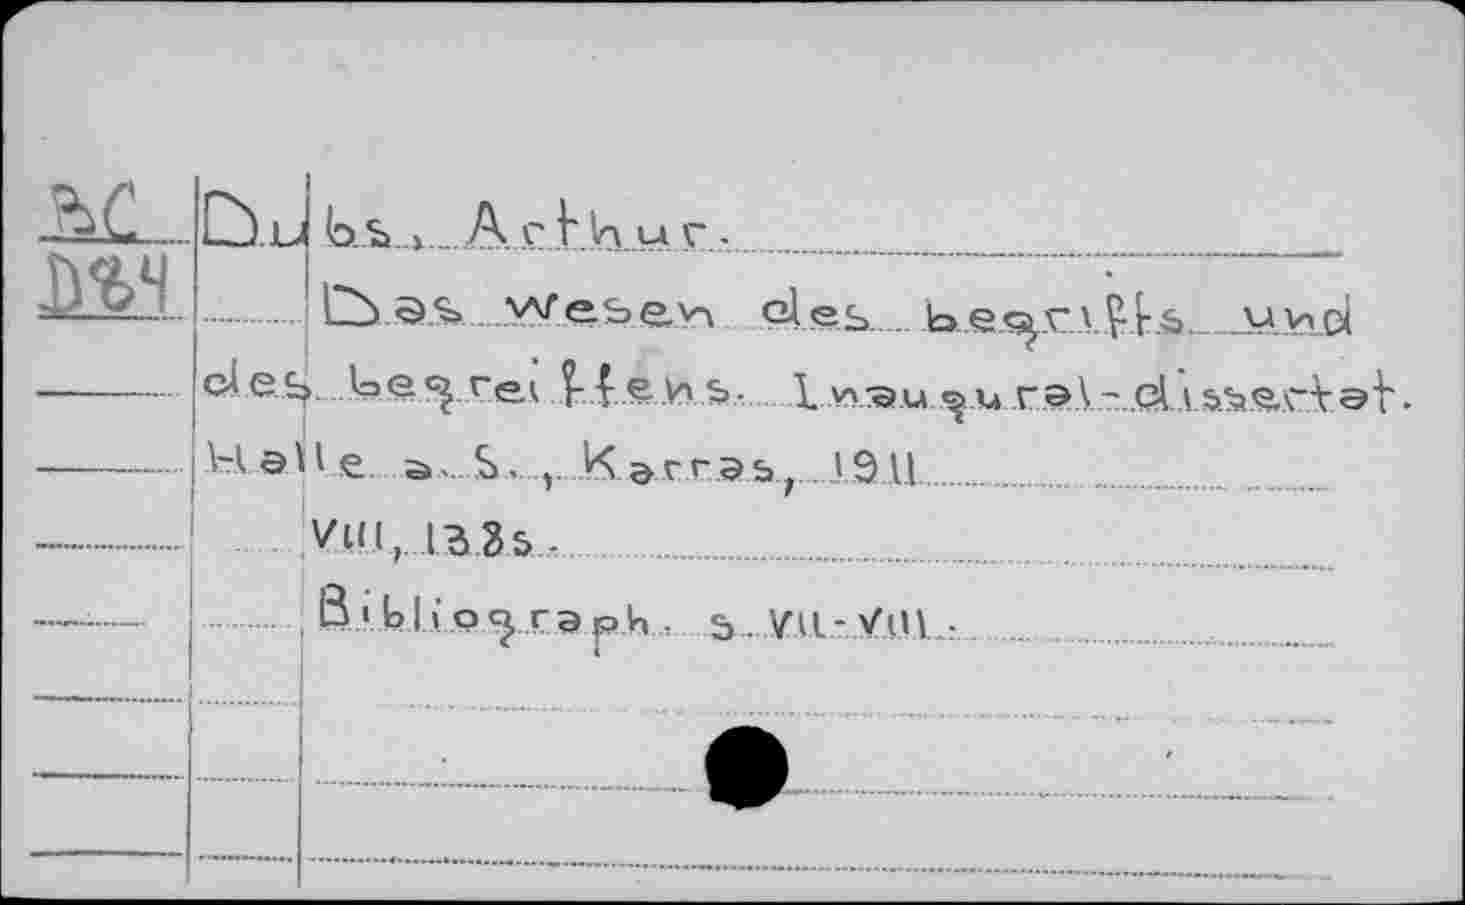 Dubs, Arthur.
Das Wesen des begriffs und
des begreiffens. Inaugural-dissertat.
Halle a. S., Karras, 1911
VIII, 138s.
Bibliograph. s. VII-VIII.